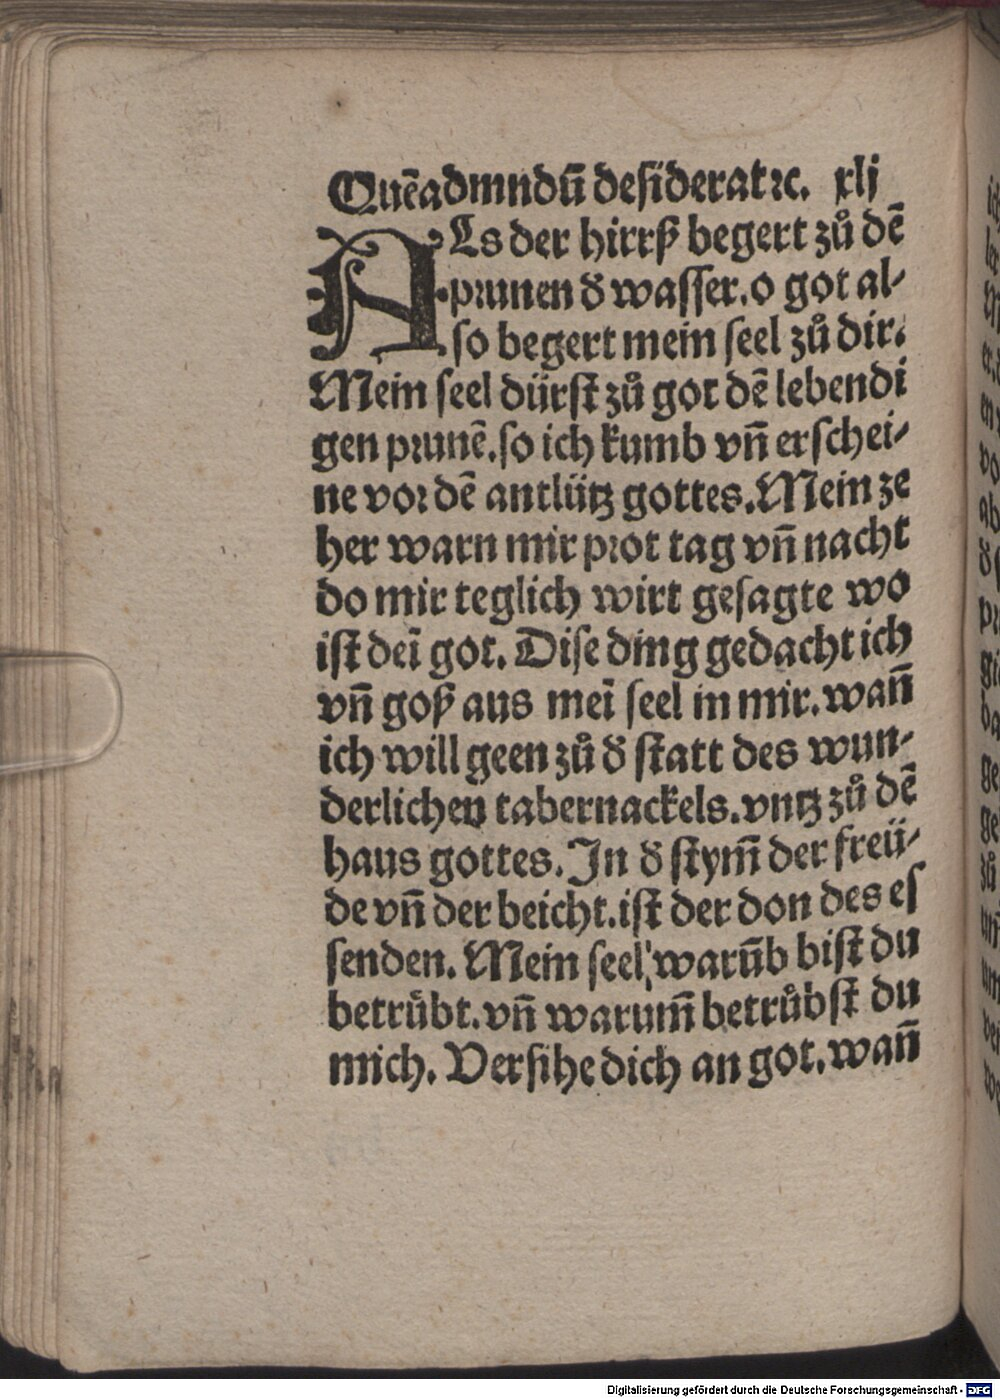 Quēadmndū desiderat ⁊c. xlj
ALs der hirrß begert zů dē
prunen ð wasser. o got al-
so begert mein seel zů dir.
Mein seel dürst zů got dē lebendi
gen prunē. so ich kumb vn̄ erschei-
ne vor dē antlütz gottes. Mein ze
her warn mir prot tag vn̄ nacht
do mir teglich wirt gesagte wo
ist deī got. Dise ding gedacht ich
vn̄ goß aus meī seel in mir. wan̄
ich will geen zů ð statt des wun-
derlichen tabernackels. vntz zů dē
haus gottes. In ð stym̄ der freü-
de vn̄ der beicht. ist der don des es
senden. Mein seel warūb bist du
betrůbt. vn̄ warum̄ betrůbst du
mich. Versihe dich an got. wan̄
Digitalisierung gefördert durch die Deutsche Forschungsgemeinschaft - DFG